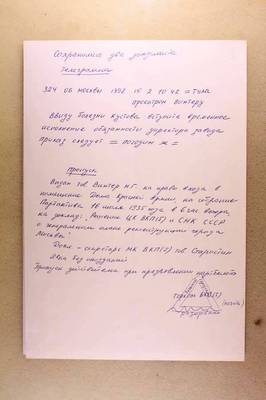 Сохранились два документа
Телеграмма
324 06 Москвы 1392 15 2 10 42 = Тула
Винтеру
Ввиду болезни Кустова вступите временное
исполнение обязанности директора завода
приказ следует =
Пропуск
Выдан тов. Винтер Н.Г. на право входа в
помещение Дома Красной Армии, на собрание
Партактива 16 июля 1935 года в 6 час вечера,
на доклад: „Решение ЦК ВКП(б) и СНК СССР
о генеральном плане реконструкции города
Москвы"
Докл. - секретарь МК ВКП(б) тов.
Явка без опозданий
Пропуск действителен при предъявлении партбилета
ВКП(б)
(печать)